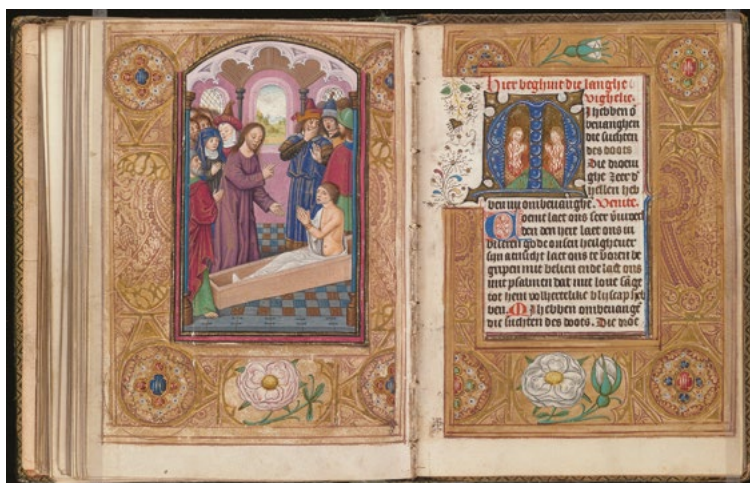 Hier beghint die langhe
vighelie.
I hebben ō
beuanghen
die suchten
des doots
Die droeui
ghe Zeer d'
hellen heb
ben my ombeuanghe. Venite.
Coemt laet ons seer
den den here laet ons in
gode onsen heilgheuer
sijn aensicht laet ons te voren be
gripen met belien ende laet ons
met psalmen dat met loue
tot hem volhertelike blijscap heb
ben. Mi hebben ombeuange
die suchten des doots. Die droe